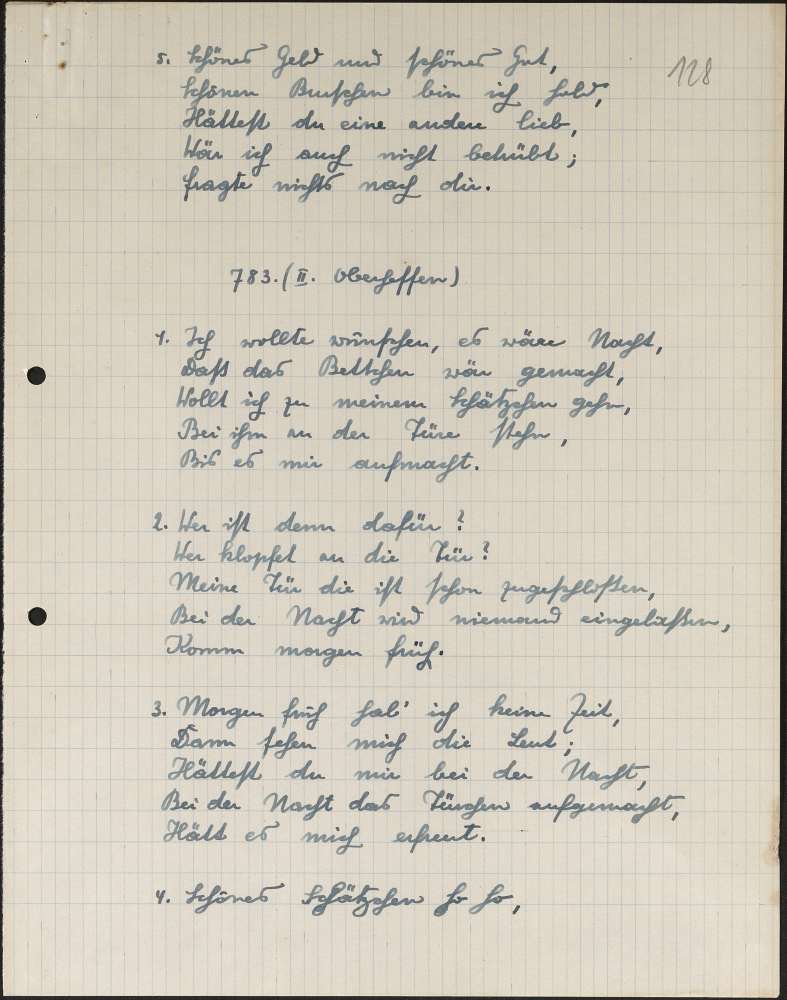 128
5. Schönes Geld und schönes Gut,
Schönen Burschen bin ich hold,
Hättest du eine andere lieb,
Wär ich auch nicht betrübt;
fragte nichts nach dir.
783. (II. Oberhessen)
1. Ich wollte wünschen, es wäre Nacht,
Daß das Bettchen wär gemacht,
Wollt ich zu meinem Schätzchen gehn,
Bei ihm an der Türe stehn,
Bis es mir aufmacht.
2. Wer ist denn dafür?
Wer klopfet an die Tür?
Meine Tür die ist schon zugeschloßen,
Bei der Nacht wird niemand eingelaßen,
Komm morgen früh.
3. Morgen früh hab' ich keine Zeit,
Dann sehen mich die Leut;
Hättest du mir bei der Nacht,
Bei der Nacht das Türchen aufgemacht,
Hätt es mich erfreut.
4. Schönes Schätzchen so so,